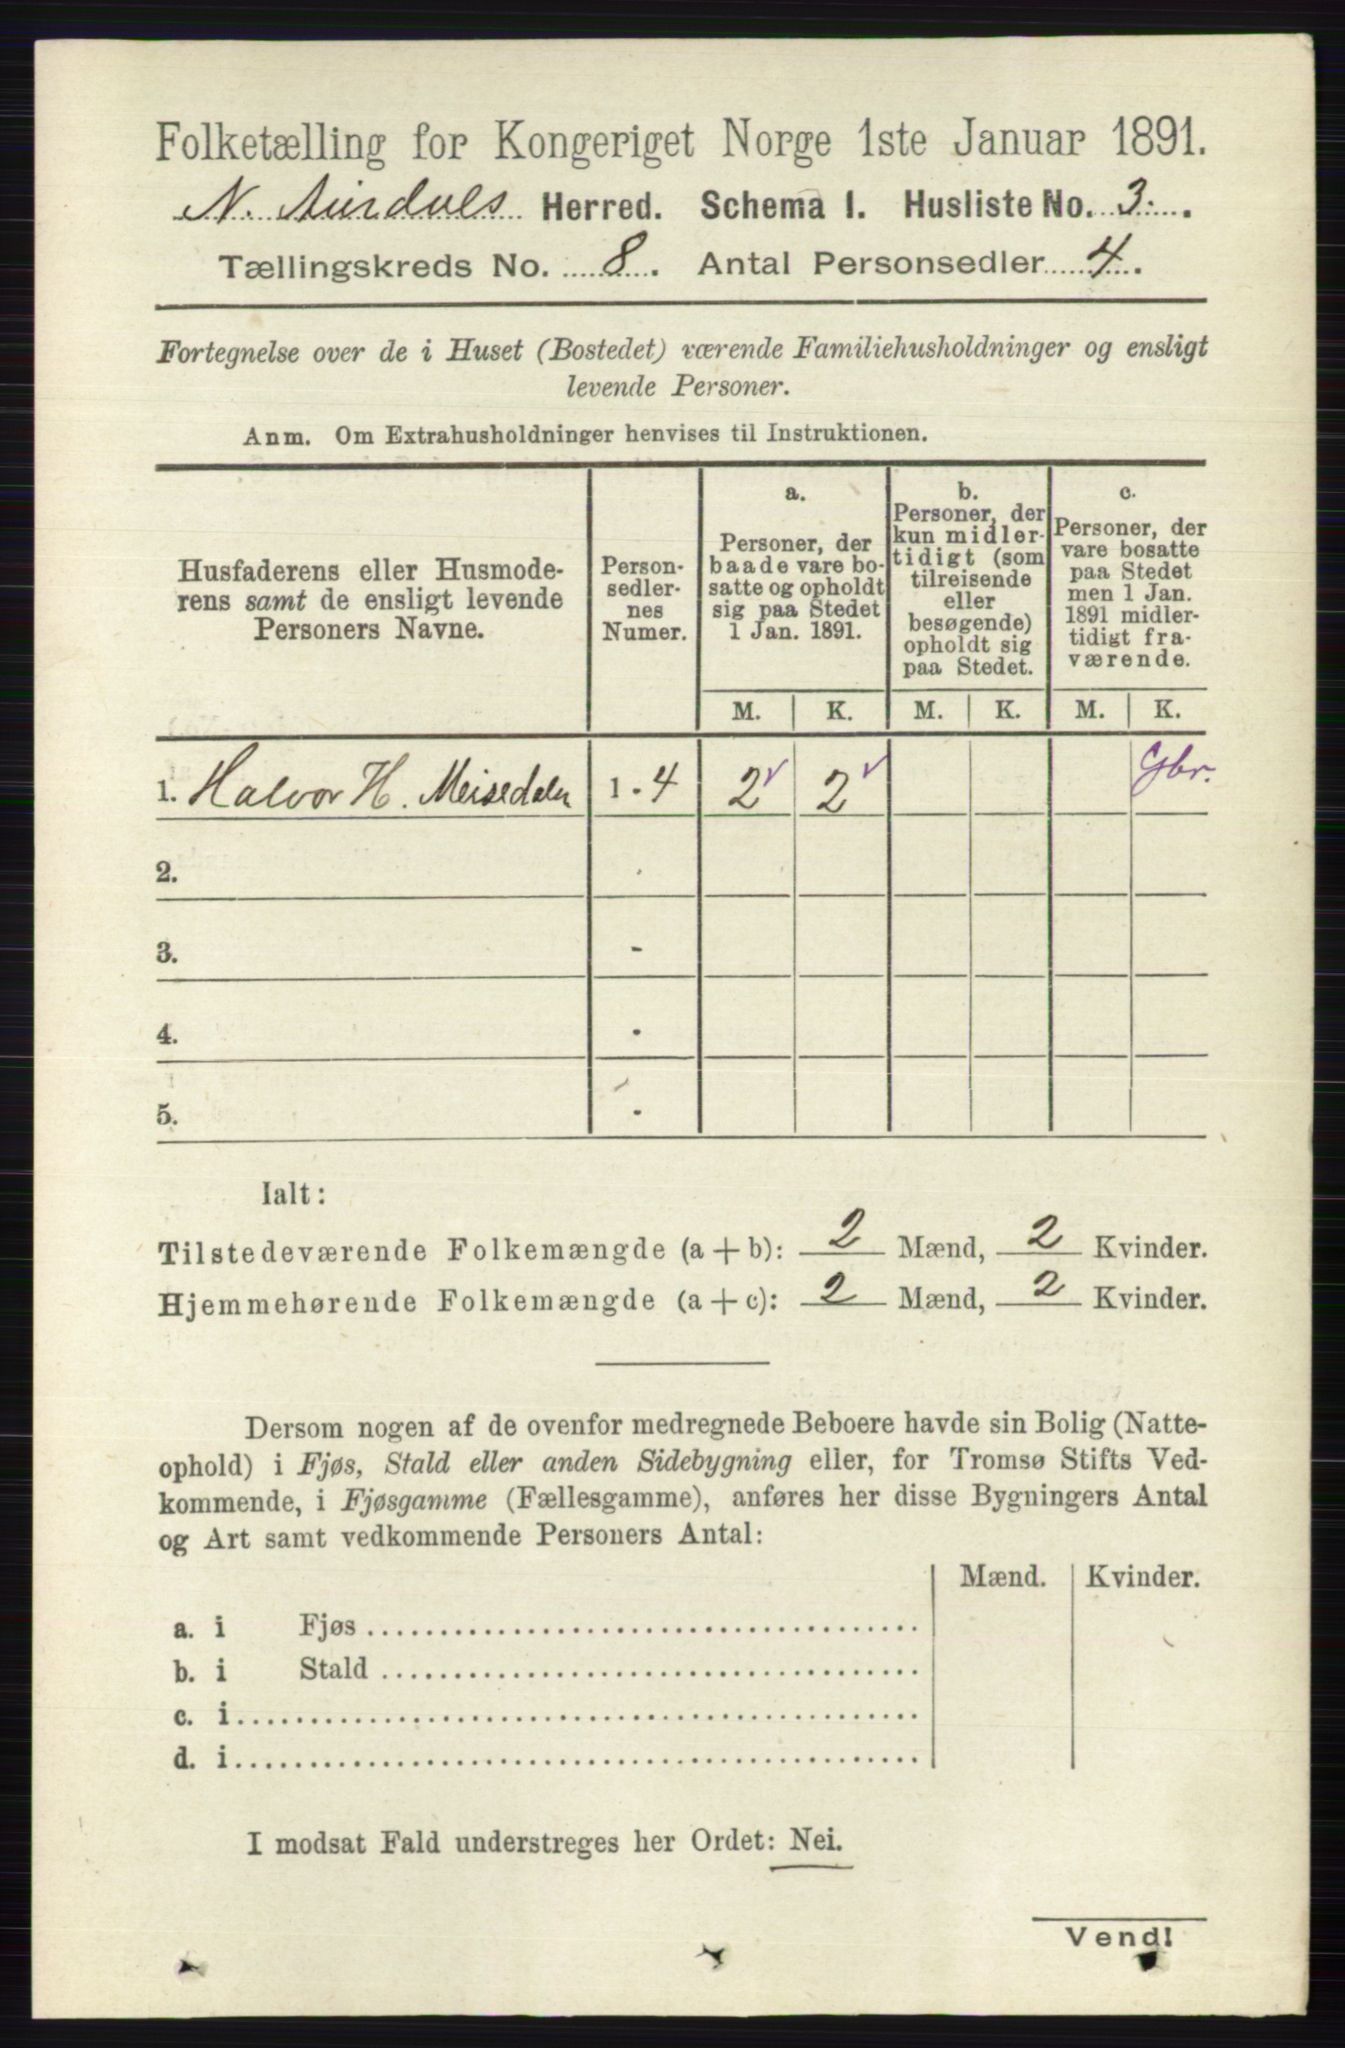 Folketælling for Kongeriget Norge 1ste Januar 1891.
N. Aurdals Herred. Schema I. Husliste No. 3.
Tællingskreds No. 8. Antal Personsedler 4.
Fortegnelse over de i Huset (Bostedet) værende Familiehusholdninger og ensligt
levende Personer.
Anm. Om Extrahusholdninger henvises til Instruktionen.
Husfaderens eller Husmode-
rens samt de ensligt levende
Personers Navne.
Person-
sedler-
nes
Numer.
a.
Personer, der
baade vare bo-
satte og opholdt
sig paa Stedet
1 Jan. 1891.
b.
Personer, der
kun midler-
tidigt (som
tilreisende
eller
besøgende)
opholdt sig
paa Stedet.
c.
Personer, der
vare bosatte
paa Stedet
men 1 Jan.
1891 midler-
tidigt fra-
værende.
M. K. M. K. M. K.
1. Halvor H. Meisedalen 1 - 4 2 2 Gbr.
2.
3. -
4. -
5. -
Ialt:
Tilstedeværende Folkemængde (a + b): 2 Mænd, 2 Kvinder.
Hjemmehørende Folkemængde (a + c): 2 Mænd, 2 Kvinder.
Dersom nogen af de ovenfor medregnede Beboere havde sin Bolig (Natte-
ophold) i Fjøs, Stald eller anden Sidebygning eller, for Tromsø Stifts Ved-
kommende, i Fjøsgamme (Fællesgamme), anføres her disse Bygningers Antal
og Art samt vedkommende Personers Antal:
Mænd. Kvinder.
a. i Fjøs
b. i Stald
c. i
d. i
I modsat Fald understreges her Ordet: Nei.
Vend!